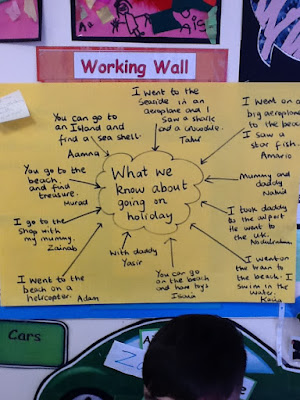 Working Wall
I went to the
Seaside in an
aeroplane and I
saw a shark
and a crocodile.
Tahir
You can go to
an Island and
find a sea shell.
Aamna
I went on a
big aeroplane
to the beach
I saw a
star fish.
Amario
You go to the
beach
and find
treasure.
Murad
What we
know about
going on
holiday
Mummy and
daddy
Nahid
I go to the
shop with
my mummy.
Zainab
I took daddy
to the airport
He went to
the uk.
I went to the
beach on a
helicopter. Adam
With daddy
Yasir
You can go
on the beach
and have toys
I went on
the train to
the beach. I
swim in the
water.
Cars